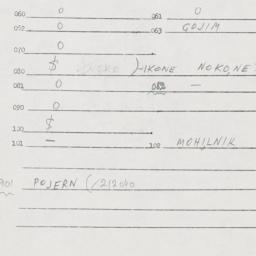 060 0 061 0
062 0 063 GOJIM
070 0
080 $ )-IKONE NOKO,NE
081 0 082 —
090 0
100 $
101 — 102 MOHILNIK
901 POJERN (/212040